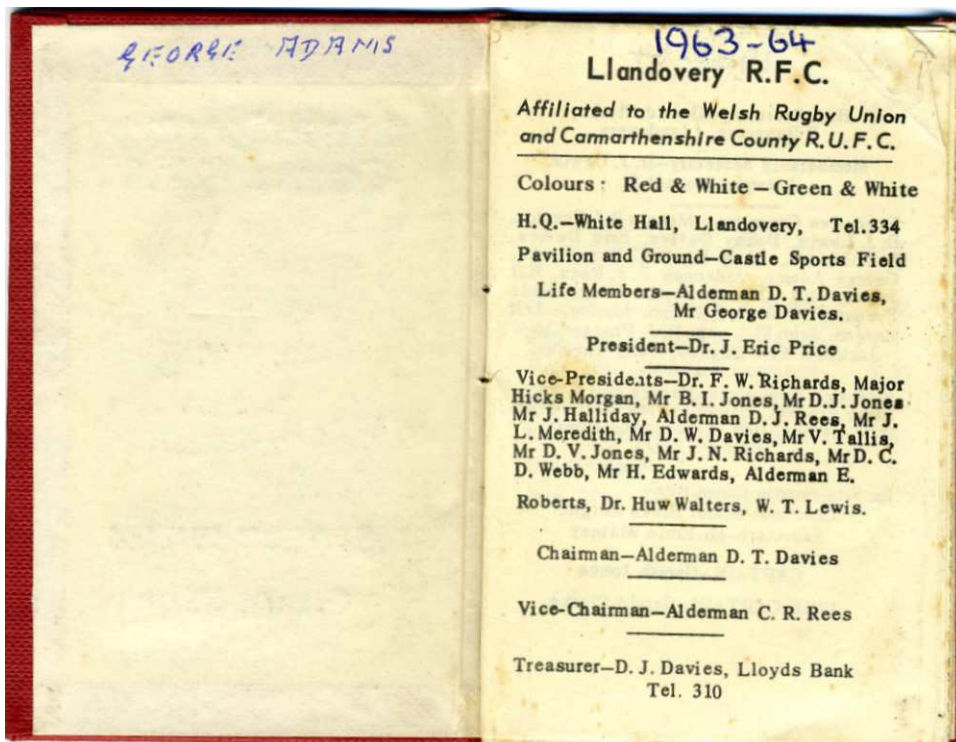 GEORGE ADAMS
1963-64
Llandovery R.F.C.
Affiliated to the Welsh Rugby Union
and Carmarthenshire County R.U.F.C.
Colours: Red & White — Green & White
H.Q.—White Hall, Llandovery, Tel.334
Pavilion and Ground—Castle Sports Field
Life Members—Alderman D. T. Davies,
Mr George Davies.
President—Dr. J. Eric Price
Vice-Presidents—Dr. F. W. Richards, Major
Hicks Morgan, Mr B. I. Jones, Mr D.J. Jones
Mr J. Halliday, Alderman D. J. Rees, Mr J.
L. Meredith, Mr D. W. Davies, Mr V. Tallis,
Mr D. V. Jones, Mr J. N. Richards, Mr D. C.
D. Webb, Mr H. Edwards, Alderman E.
Roberts, Dr. Huw Walters, W. T. Lewis.
Chairman—Alderman D. T. Davies
Vice-Chairman—Alderman C. R. Rees
Treasurer—D. J. Davies, Lloyds Bank
Tel. 310